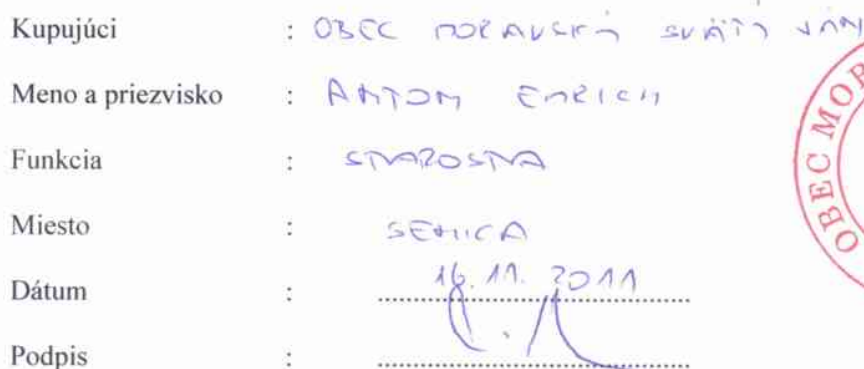 Kupujúci : OBEC MORAVSKÝ SVÄTÝ JÁN
Meno a priezvisko : ANTON EMRICH
Funkcia : STAROSTA
Miesto : SENICA
Dátum : 16. 11. 2011
Podpis :
OBEC MOR